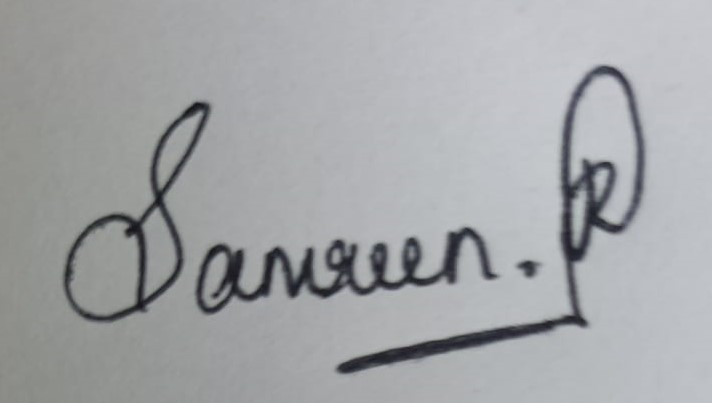 Samreen. R